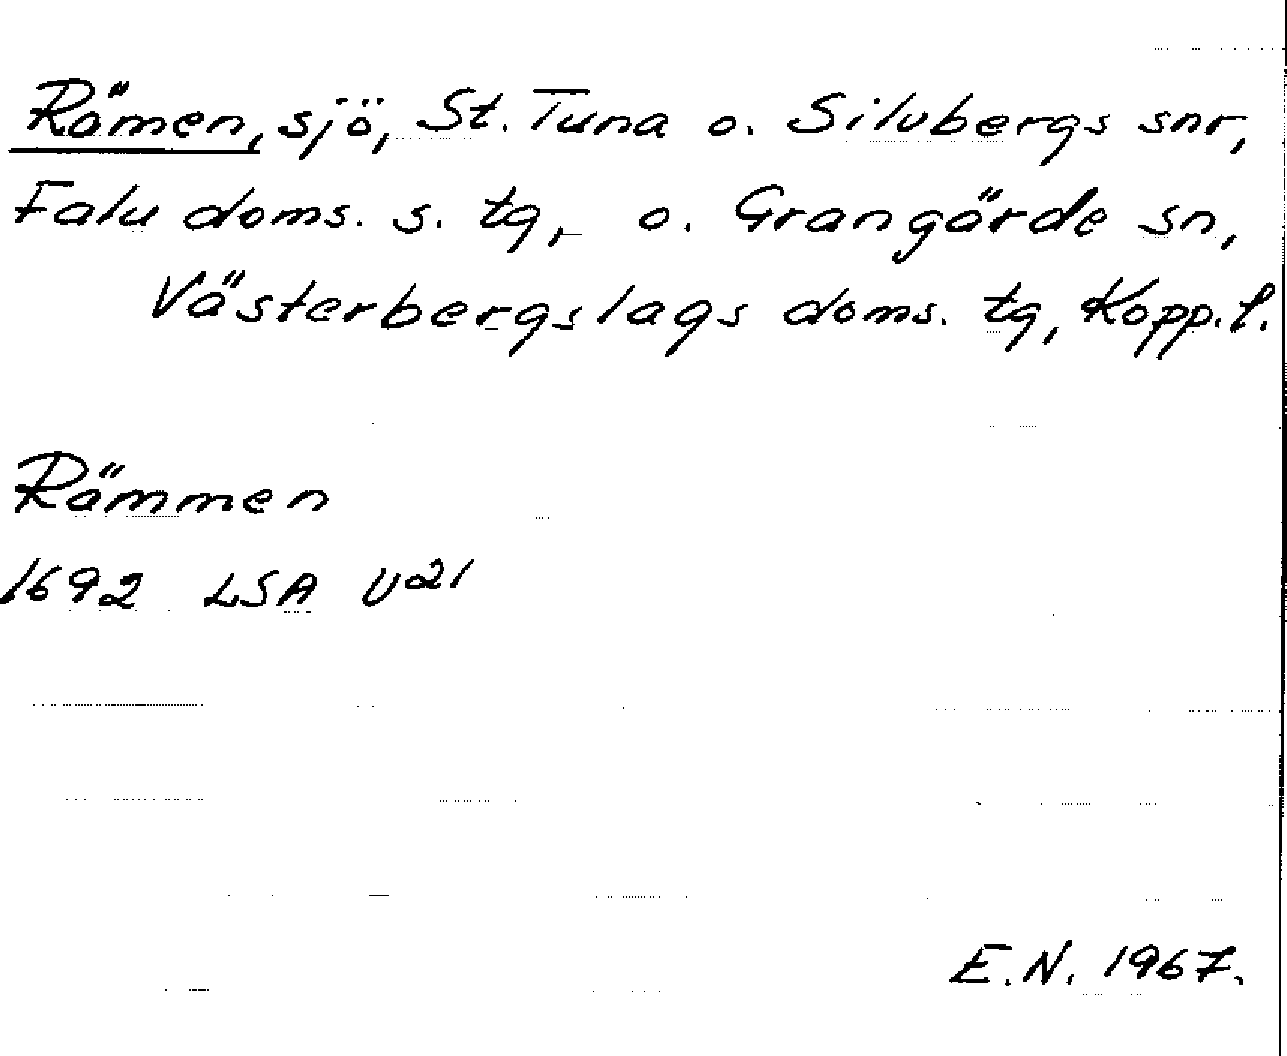 Rämen, sjö, St. Tuna o. Silvbergs snr,
Falu doms. s. tg, o. Grangärde sn,
Västerbergslags doms. tg, Kopp. l.
Rämmen
1692 LSA U21
E.N. 1967.